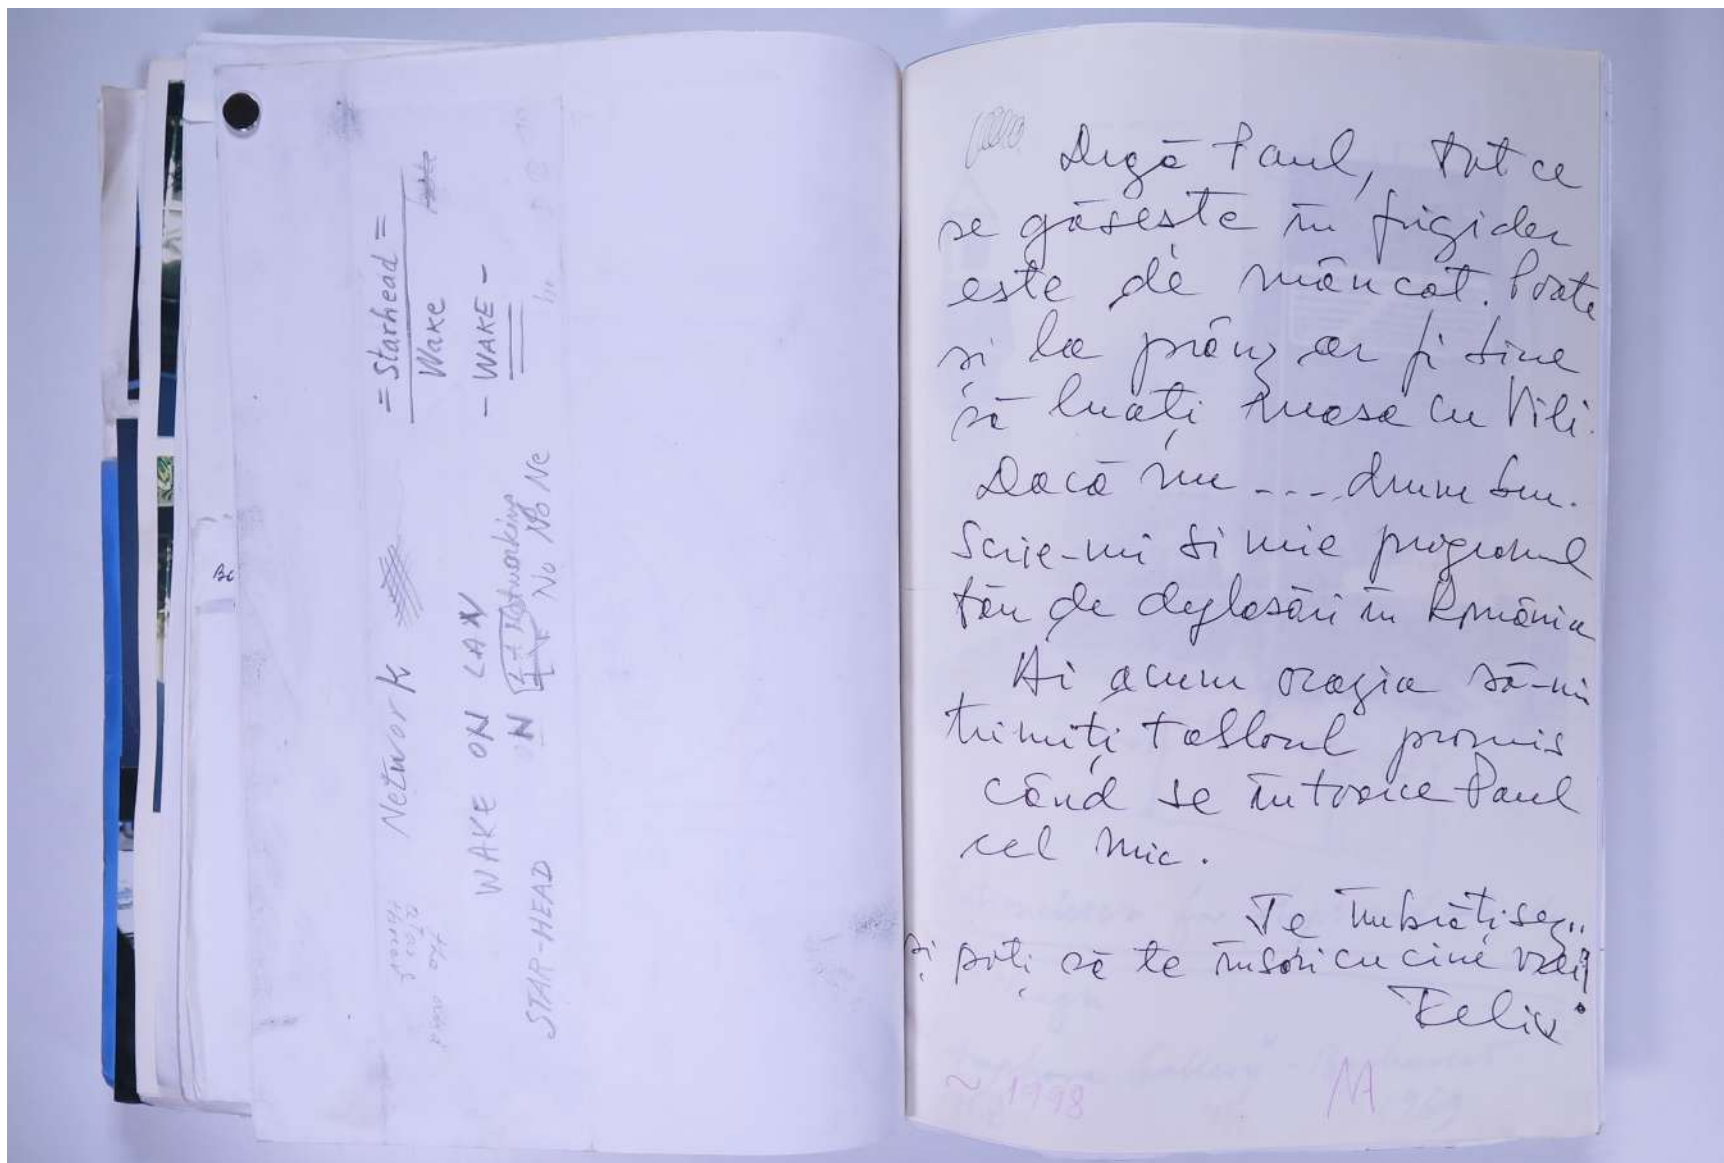 = Starhead =
Wake
- WAKE -
Network
WAKE ON LAN
Networking
No No Ne
STAR-HEAD
Be
Dragă Paul, tot ce
se găsește în frigider
este de mâncat. Poate
și la prânz ar fi bine
să luați masa cu Vili.
Dacă nu .... drum bun.
Scrie-mi și mie programul
tău de deplasări în România
Ai acum ocazia să-mi
trimiți tabloul promis
când se întoarce Paul
cel mic.
Te îmbrățișez..
și poți să te însori cu cine vrei!
Felix
~ 1998